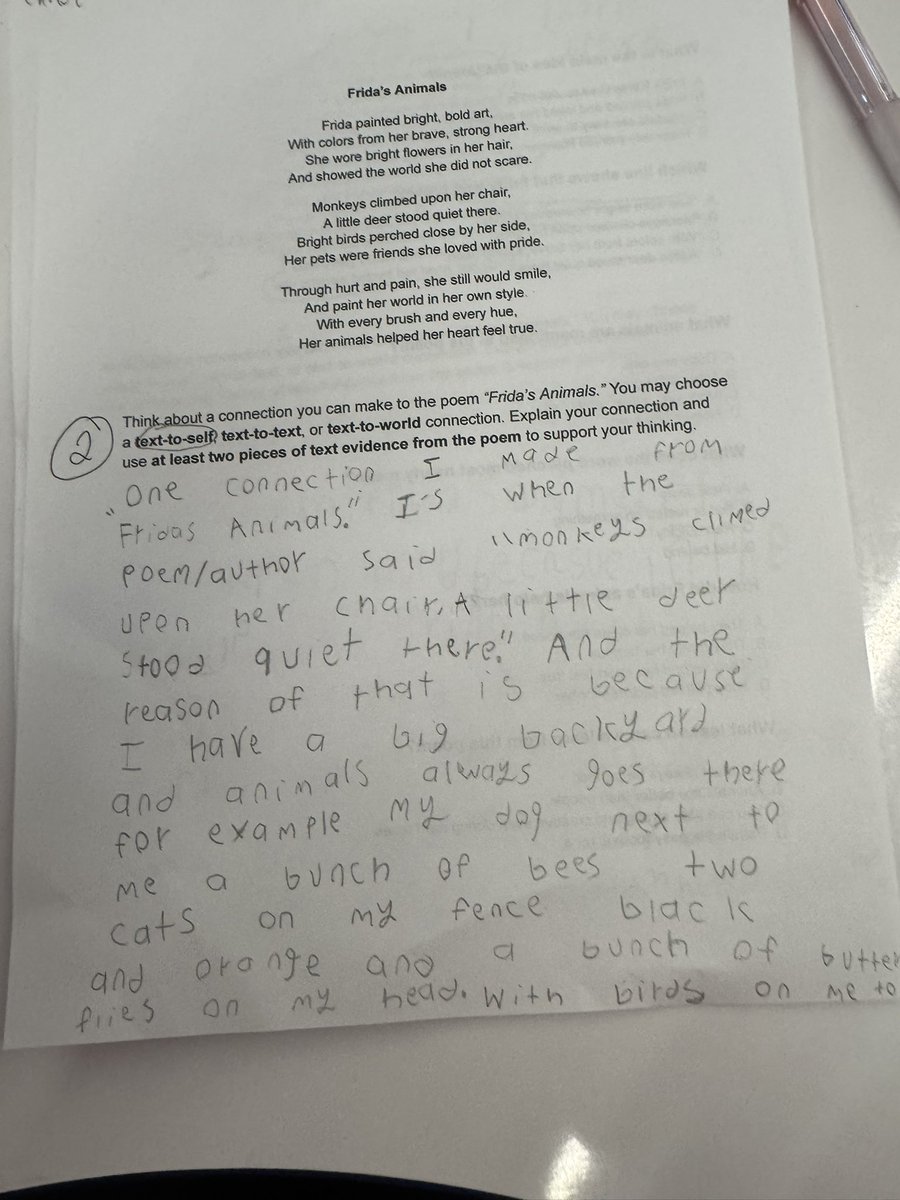 Frida's Animals
Frida painted bright, bold art,
With colors from her brave, strong heart.
She wore bright flowers in her hair,
And showed the world she did not scare.
Monkeys climbed upon her chair,
A little deer stood quiet there.
Bright birds perched close by her side,
Her pets were friends she loved with pride.
Through hurt and pain, she still would smile,
And paint her world in her own style.
With every brush and every hue,
Her animals helped her heart feel true.
2
Think about a connection you can make to the poem "Frida's Animals." You may choose
a text-to-self, text-to-text, or text-to-world connection. Explain your connection and
use at least two pieces of text evidence from the poem to support your thinking.
"One connection I made from
Fridas Animals." I's when the
poem/author said "monkeys climed
upen her chair, A little deer
stood quiet there." And the
reason of that is because
I have a big backyard
and animals always goes there
for example my dog next to
me a bunch of bees two
cats on my fence black
and orange and a bunch of butter
flies on my head. With birds on me to